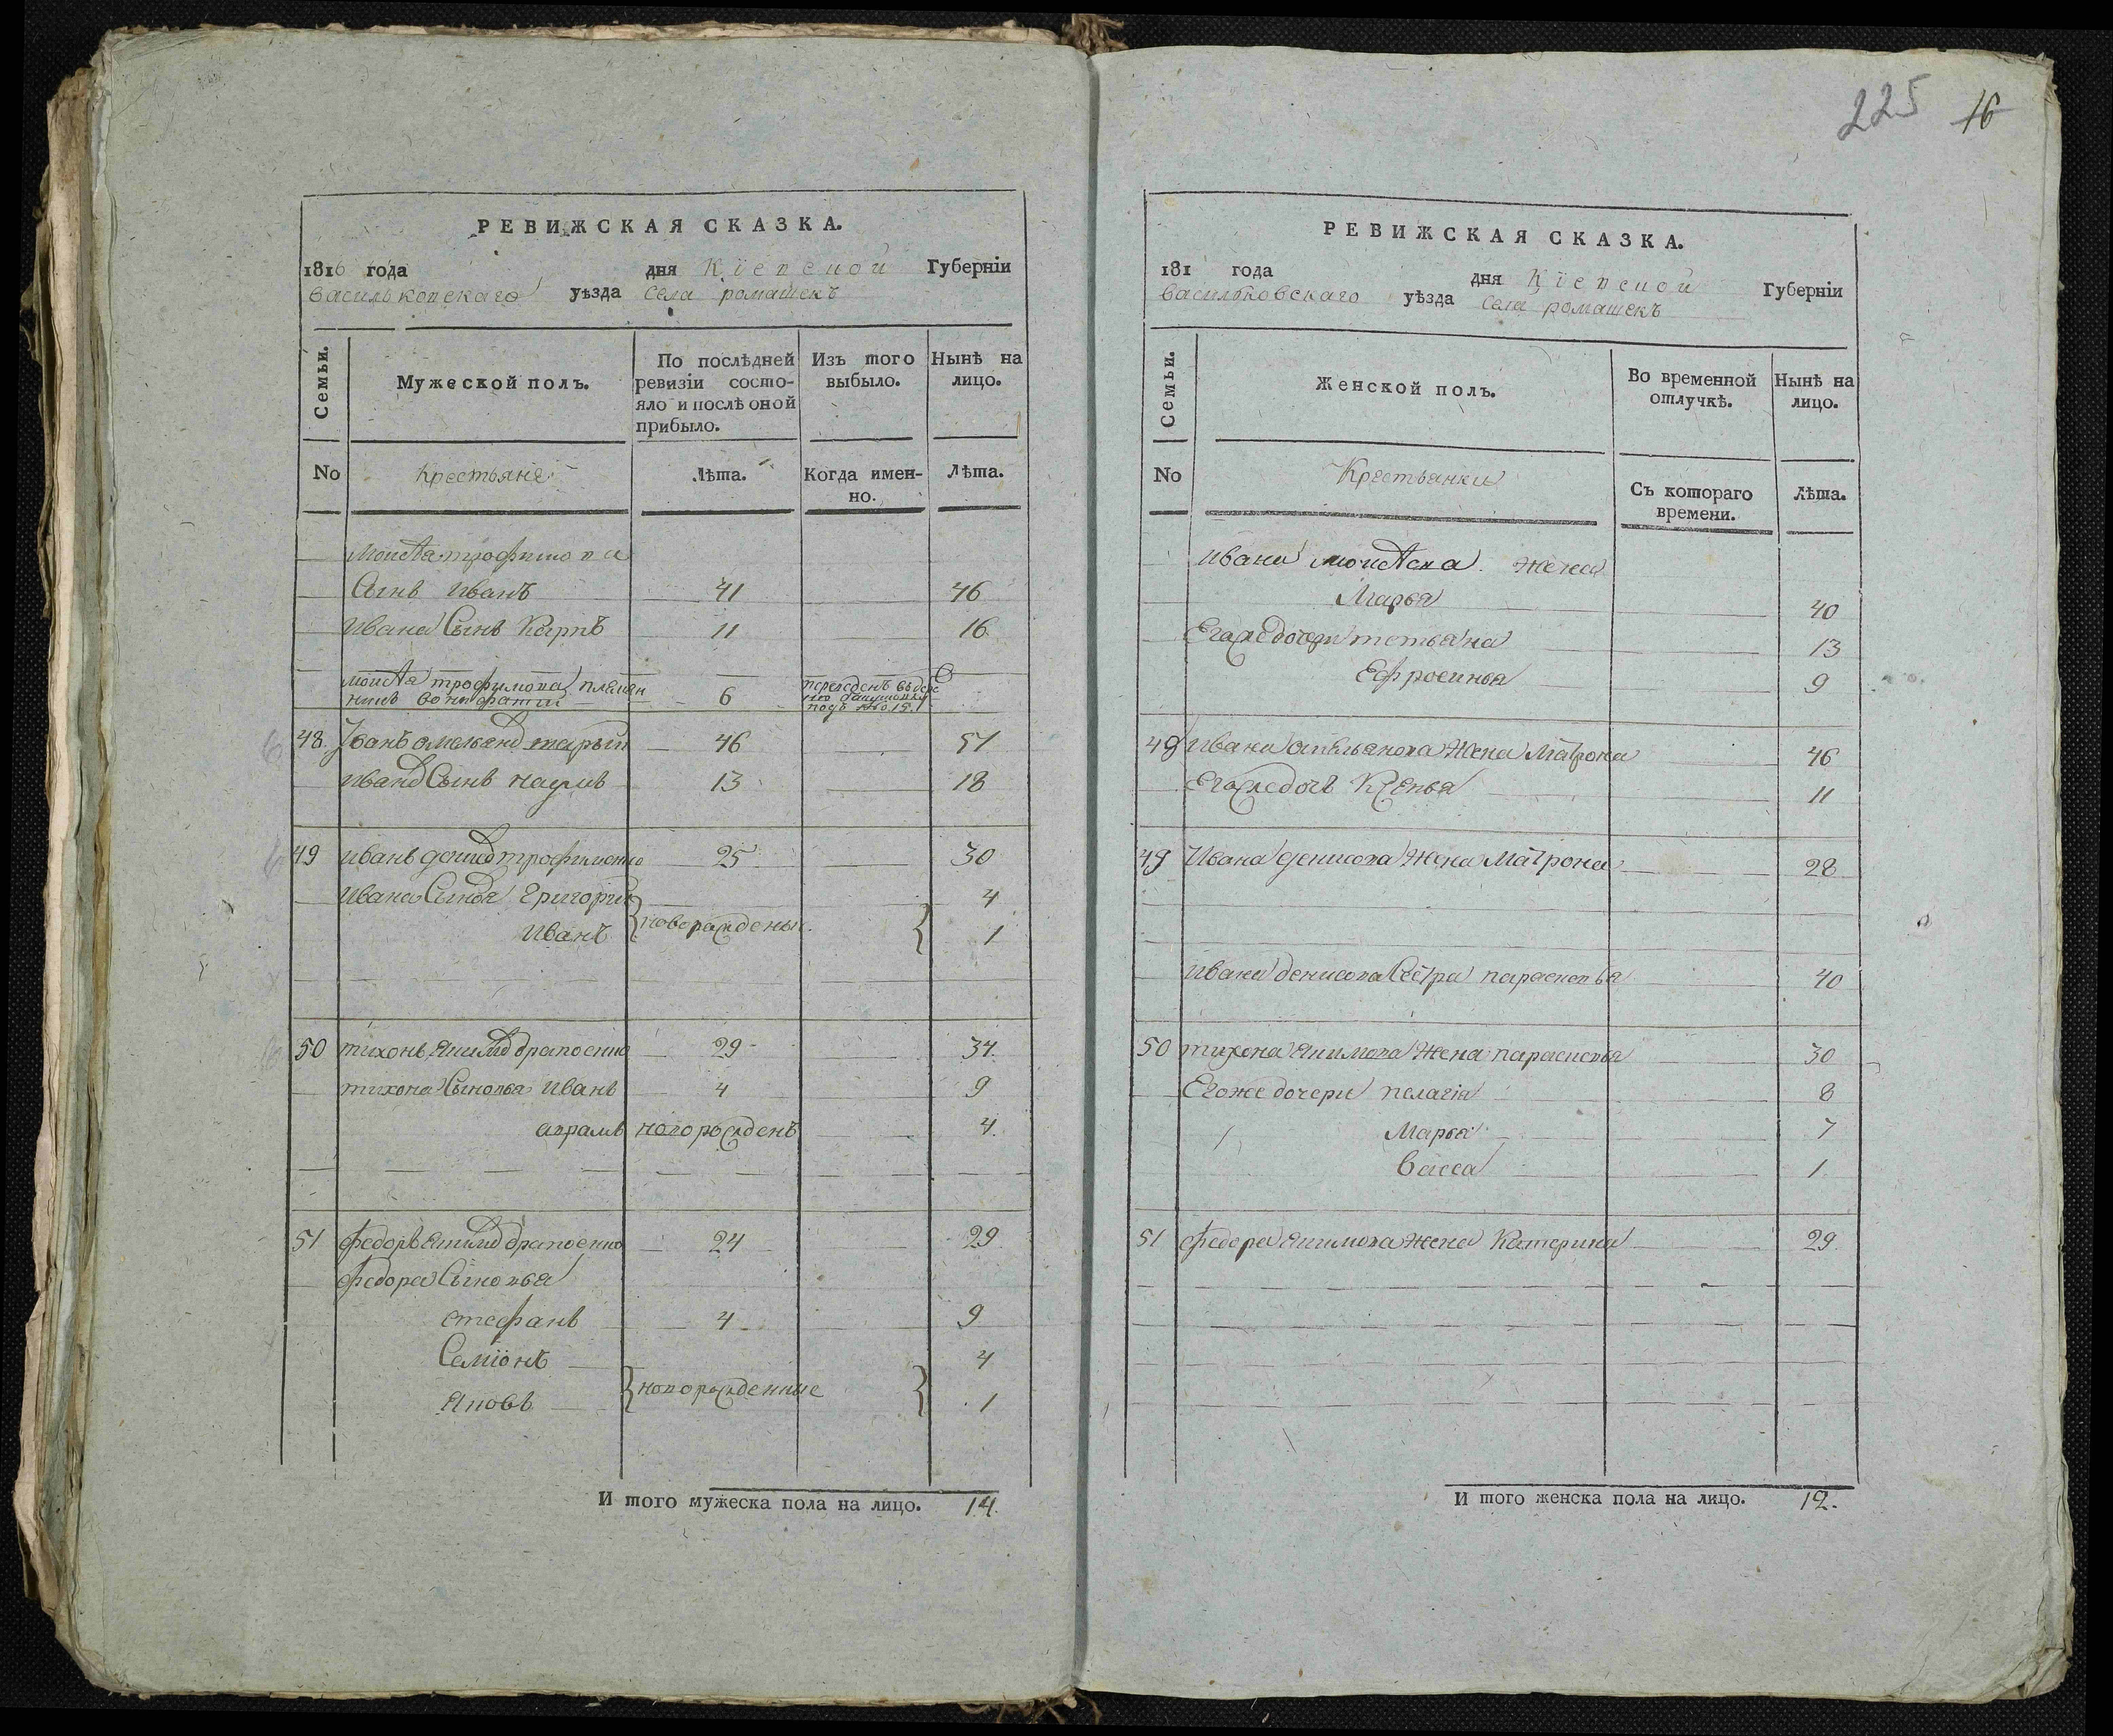 РЕВИЖСКАЯ СКАЗКА.
1816 года дня Кіевской Губерніи
Васильковскаго уѣзда Села ромашекъ
Семьи.
Мужеской полъ.
По послѣдней ревизіи состо-
яло и послѣ оной
прибыло.
Изъ того выбыло.
Нынѣ на лицо.
No Крестьяне Лѣта. Когда имен-
но. Лѣта.
Моисея трофимова
Сынъ Иванъ 41 46
Ивана Сынъ Карпъ 11 16
моисея трофимова племен
никъ вонифатий 6 переведенъ въ дерев
подъ №о 15.
48. Иванъ омельянов 46 51
Иванов Сынъ наумъ 13 18
49 иванъ денисов трофименко 25 30
Ивана Сыновя Григорий 4
Иванъ новорожденые 1
50 тихонъ Якимов драпоенко 29 34
тихона Сыновья Иванъ 4 9
аврамъ новорожденъ 4.
51 федоръ Якимов драпоенко 24 29
федора Сыновья
стефанъ 4 9
Семіонъ 4
Яковъ новорожденные 1
И того мужеска пола на лицо. 14.
225 16
РЕВИЖСКАЯ СКАЗКА.
181 года дня Кіевской Губерніи
Васильковскаго уѣзда Села ромашекъ
Семьи.
Женской полъ.
Во временной отлучкѣ.
Нынѣ на лицо.
No Крестьянки Съ котораго
времени. Лѣта.
Ивана моисеева жена
Марья 40
Егоже дочери татьяна 13
Ефросинья 9
49 Ивана омельянова Жена Матрона 46
Егоже дочь Ксенья 11
49 Ивана денисова Жена Матрона 28
Ивана денисова Сестра парасковья 40
50 тихона Якимова Жена парасковья 30
Егоже дочери пелагія 8
Марья 7
Васса 1
51 федора Якимова жена Катерина 29
И того женска пола на лицо. 12.